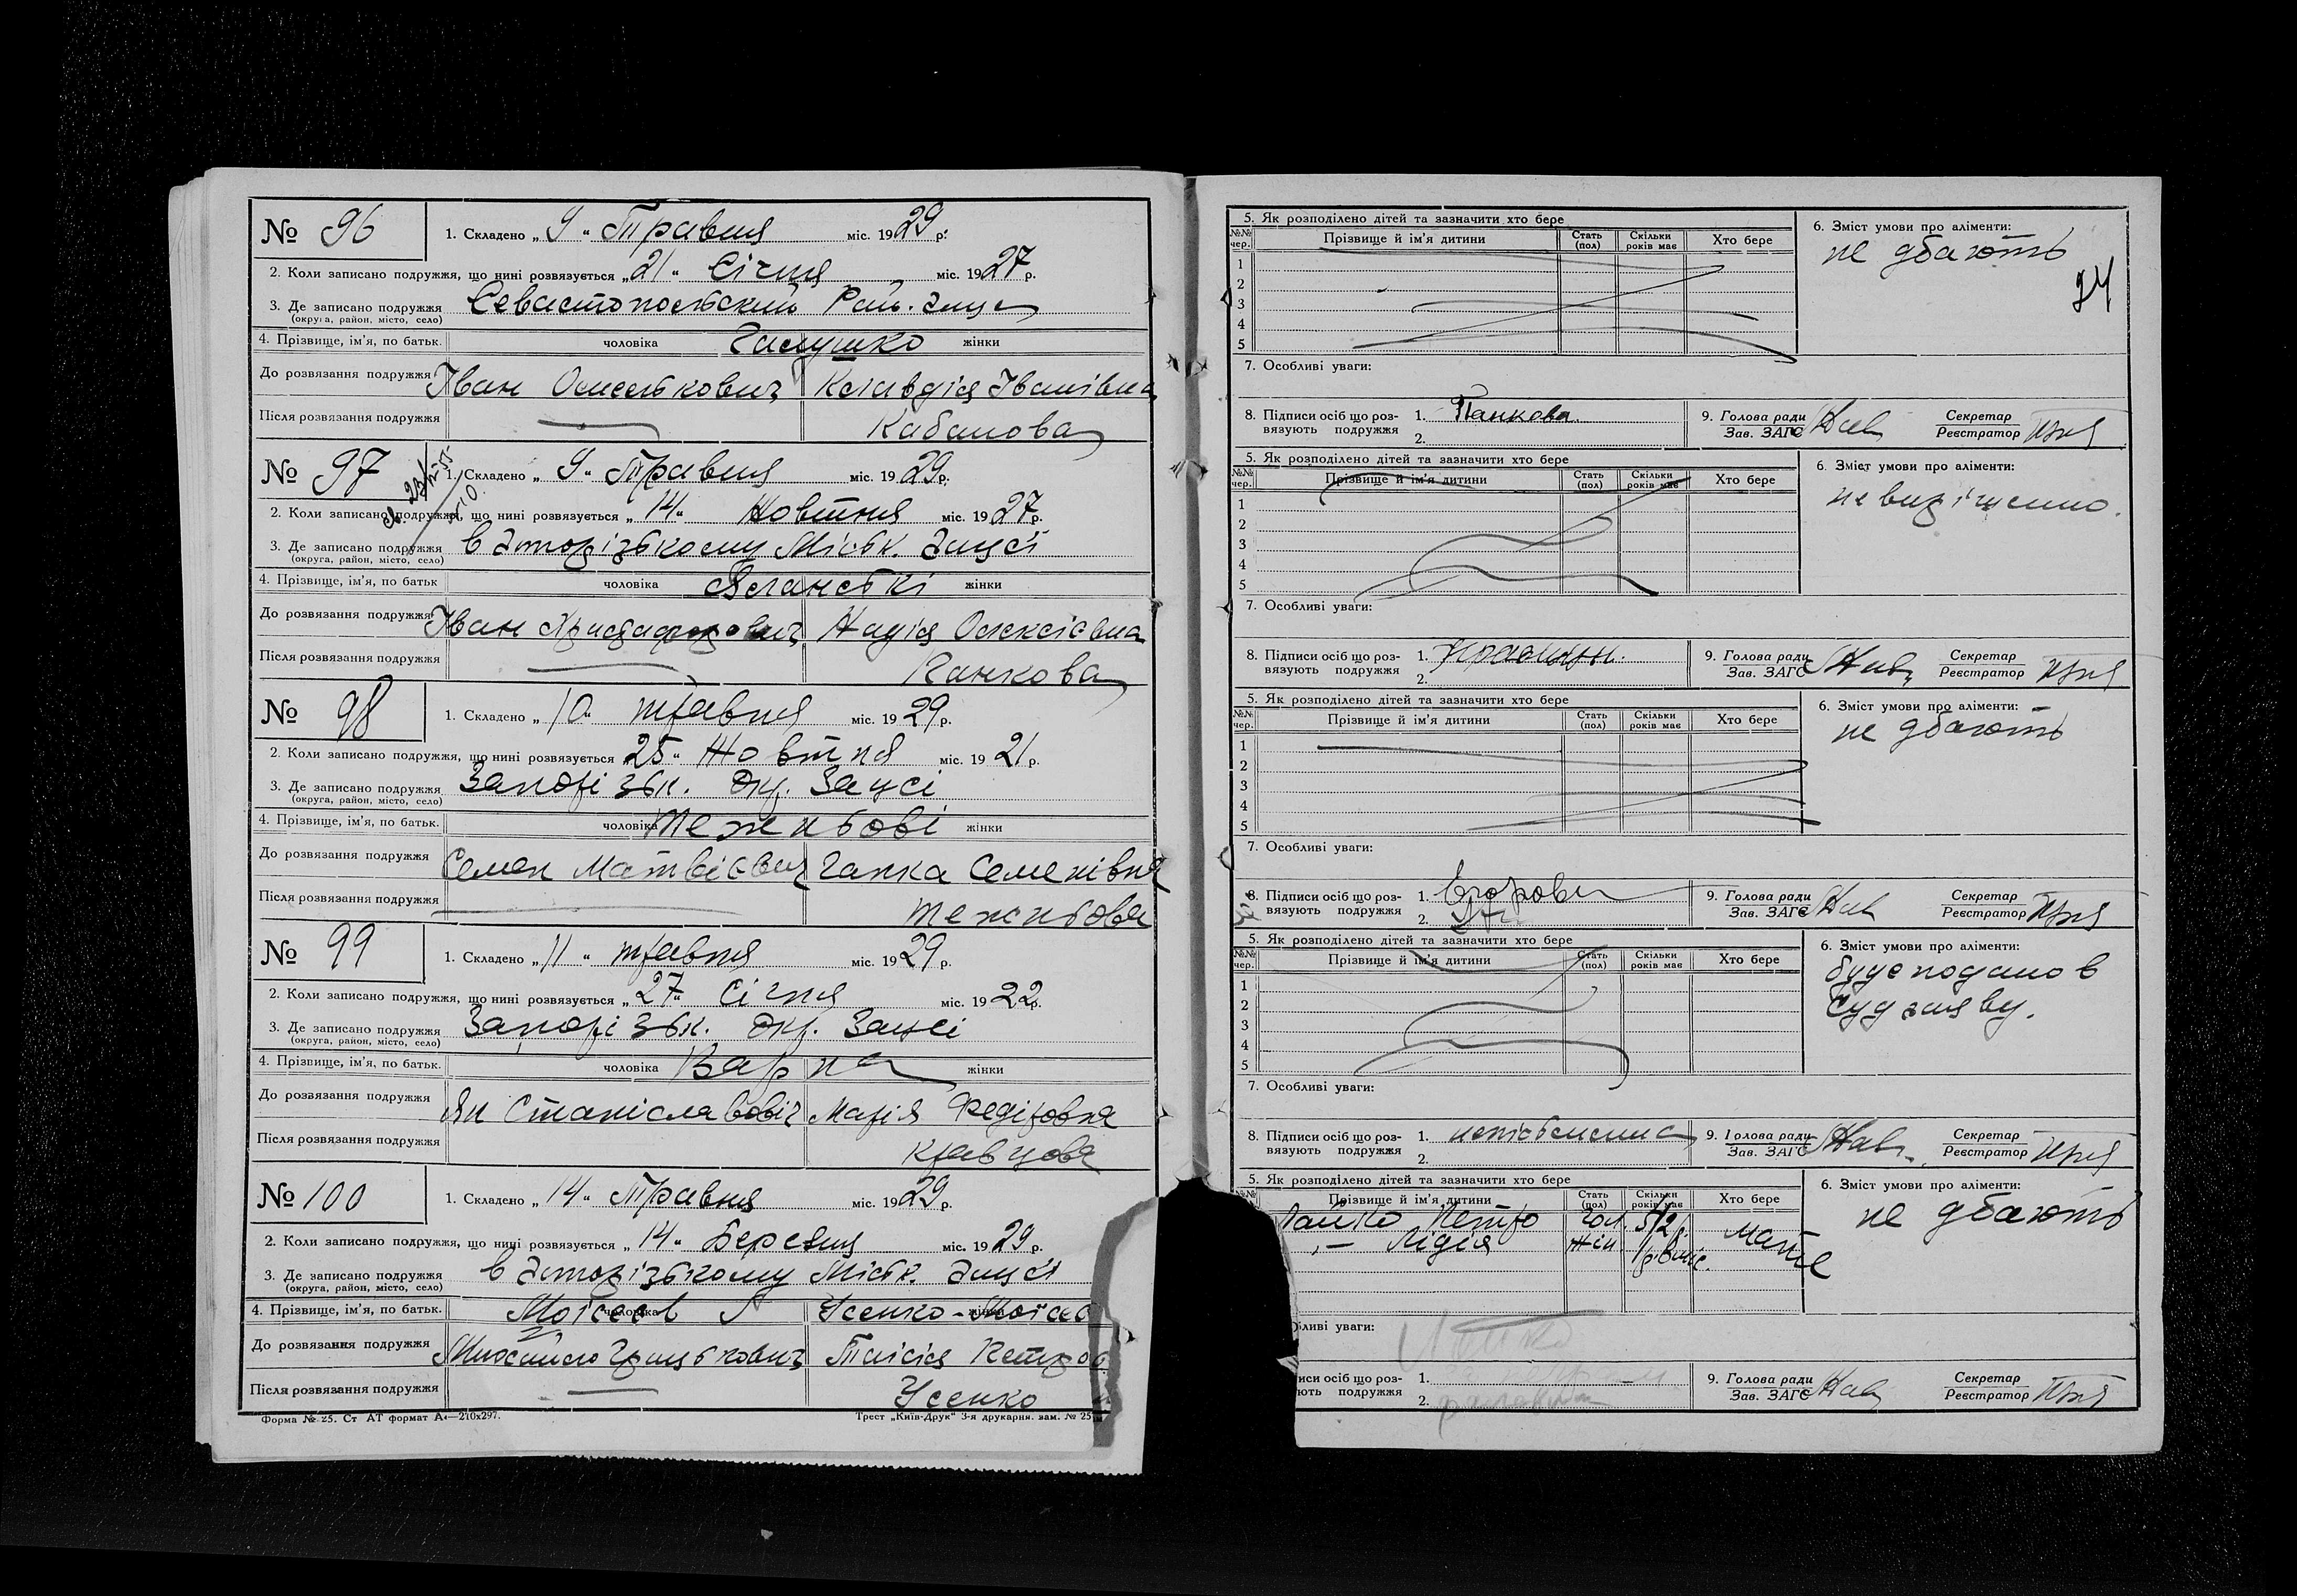 № 96
1. Складено „ 9 “ Травня міс. 1929 р.
2. Коли записано подружжя, що нині розвязується „ 21 “ Січня міс. 1927 р.
3. Де записано подружжя Севастопольский Рай.
(округа, район, місто, село)
4. Прізвище, ім'я, по батьк. чоловіка Галушко жінки
До розвязання подружжя Іван Клавдія Іванівна
Після розвязання подружжя — Кабанова
№ 97
1. Складено „ 9 “ Травня міс. 1929 р.
2. Коли записано подружжя, що нині розвязується „ 14 “ Жовтня міс. 1927 р.
3. Де записано подружжя в Запорізькому Міськ. Загсі
(округа, район, місто, село)
4. Прізвище, ім'я, по батьк чоловіка жінки
До розвязання подружжя Іван Надія Олексієвна
Після розвязання подружжя — Панкова
№ 98
1. Складено „ 10 “ травня міс. 1929 р.
2. Коли записано подружжя, що нині розвязується „ 25 “ Жовтня міс. 1921 р.
3. Де записано подружжя Запорізьк. Окр. Загсі
(округа, район, місто, село)
4. Прізвище, ім'я, по батьк. чоловіка жінки
До розвязання подружжя Семен Матвієвич Гапка Семенівна
Після розвязання подружжя —
№ 99
1. Складено „ 11 “ травня міс. 1929 р.
2. Коли записано подружжя, що нині розвязується „ 27 “ Січня міс. 1922 р.
3. Де записано подружжя Запорізьк. Окр. Загсі
(округа, район, місто, село)
4. Прізвище, ім'я, по батьк. чоловіка Варна жінки
До розвязання подружжя Ян Станіславовіч Марія Федіровна
Після розвязання подружжя Кравцова
№ 100
1. Складено „ 14 “ Травня міс. 1929 р.
2. Коли записано подружжя, що нині розвязується „ 14 “ Березня міс. 1929 р.
3. Де записано подружжя в Запорізькому Міськ. Загсі
(округа, район, місто, село)
4. Прізвище, ім'я, по батьк. чоловіка Моісеєв жінки Усенко-Моісеєв
До розвязання подружжя Михайло Грицькович Таісія Петров
Після розвязання подружжя — Усенко
Форма № 25. Ст АТ формат А4—210x297.
Трест „Київ-Друк“ 3-я друкарня. зам. № 25
24
5. Як розподілено дітей та зазначити хто бере
№№ чер. Прізвище й ім'я дитини Стать (пол) Скільки років має Хто бере
1
2
3
4
5
6. Зміст умови про аліменти:
не дбають
7. Особливі уваги:
8. Підписи осіб що розвязують подружжя 1. Панкова 2.
9. Голова ради Зав. ЗАГС Секретар Реєстратор
5. Як розподілено дітей та зазначити хто бере
№№ чер. Прізвище й ім'я дитини Стать (пол) Скільки років має Хто бере
1
2
3
4
5
6. Зміст умови про аліменти:
не вирішено.
7. Особливі уваги:
8. Підписи осіб що розвязують подружжя 1. 2.
9. Голова ради Зав. ЗАГС Секретар Реєстратор
5. Як розподілено дітей та зазначити хто бере
№№ чер. Прізвище й ім'я дитини Стать (пол) Скільки років має Хто бере
1
2
3
4
5
6. Зміст умови про аліменти:
не дбають
7. Особливі уваги:
8. Підписи осіб що розвязують подружжя 1. 2.
9. Голова ради Зав. ЗАГС Секретар Реєстратор
5. Як розподілено дітей та зазначити хто бере
№№ чер. Прізвище й ім'я дитини Стать (пол) Скільки років має Хто бере
1
2
3
4
5
6. Зміст умови про аліменти:
буде подано в
суд заяву.
7. Особливі уваги:
8. Підписи осіб що розвязують подружжя 1. непісьменна 2.
9. Голова ради Зав. ЗАГС Секретар Реєстратор
5. Як розподілено дітей та зазначити хто бере
Прізвище й ім'я дитини Стать (пол) Скільки років має Хто бере
Петро Чол. 5/2 р. Мати
–"– Лідія Жін.
6. Зміст умови про аліменти:
не дбають
ливі уваги:
иси осіб що роз-
ють подружжя 1. 2.
9. Голова ради Зав. ЗАГС Секретар Реєстратор